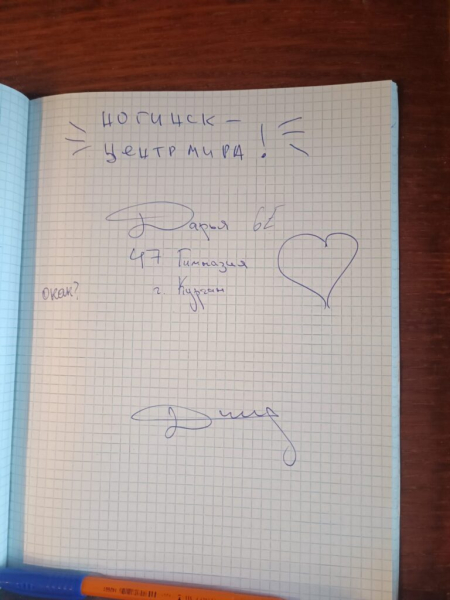 НОГИНСК —
ЦЕНТР МИРА!
Дарья 6Б
47 Гимназия
г. Курган
окак?